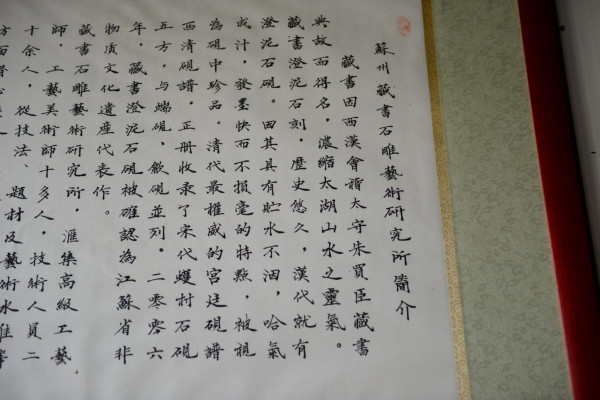 蘇州藏書石雕藝術研究所簡介
藏書因西漢會稽太守朱買臣藏書
典故而得名，濃縮太湖山水之靈氣。
藏書澄泥石刻，歷史悠久，漢代就有
澄泥石硯。因其具有貯水不涸，哈氣
成汁，發墨快而不損毫的特點，被視
為硯中珍品。清代最權威的宮廷硯譜
西清硯譜，正册收录了宋代蠖村石硯
五方，与端硯，歙硯並列，二零零六
年，藏書澄泥石硯被確認為江蘇省非
物质文化遺産代表作。
藏書石雕藝術研究所，滙集高級工藝
師，工藝美術師十多人，技術人員二
十余人，從技法、題材及藝術水准